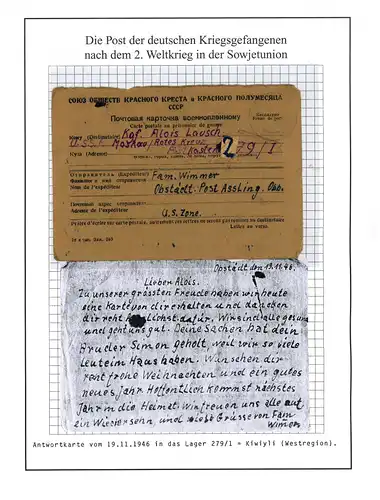 Die Post der deutschen Kriegsgefangenen
nach dem 2. Weltkrieg in der Sowjetunion
СОЮЗ ОБЩЕСТВ КРАСНОГО КРЕСТА и КРАСНОГО ПОЛУМЕСЯЦА
СССР
Почтовая карточка военнопленному
Carte postale au prisonnier de guerre
Кому (Destinataire) Kgf. Alois Lausch
U.S.S.R. Moskau / Rotes Kreuz
Куда (Adresse) Postkasten 279/I
Отправитель (Expéditeur) Fam. Wimmer
Фамилия и имя отправителя
Nom de l'expéditeur Obstädt. Post Assling. Obb.
Почтовый адрес отправителя
Adresse de l'expéditeur U.S. Zone.
Obstädt den 19.11.46.
Lieber Alois.
Zu unserer grössten Freude haben wir heute
eine Karte von dir erhalten und danken
dir recht herzlichst dafür. Wir sind alle gesund
und geht uns gut. Deine Sachen hat dein
Bruder Simon geholt, weil wir so viele
leute im Haus haben. Wünschen dir
recht frohe Weihnachten und ein gutes
neues Jahr. Hoffentlich kommst nächstes
Jahr in die Heimat. Wir freuen uns alle auf
ein Wiedersehn und viele Grüsse von Fam
Wimmer
Antwortkarte vom 19.11.1946 in das Lager 279/1 = Kiwiyli (Westregion).